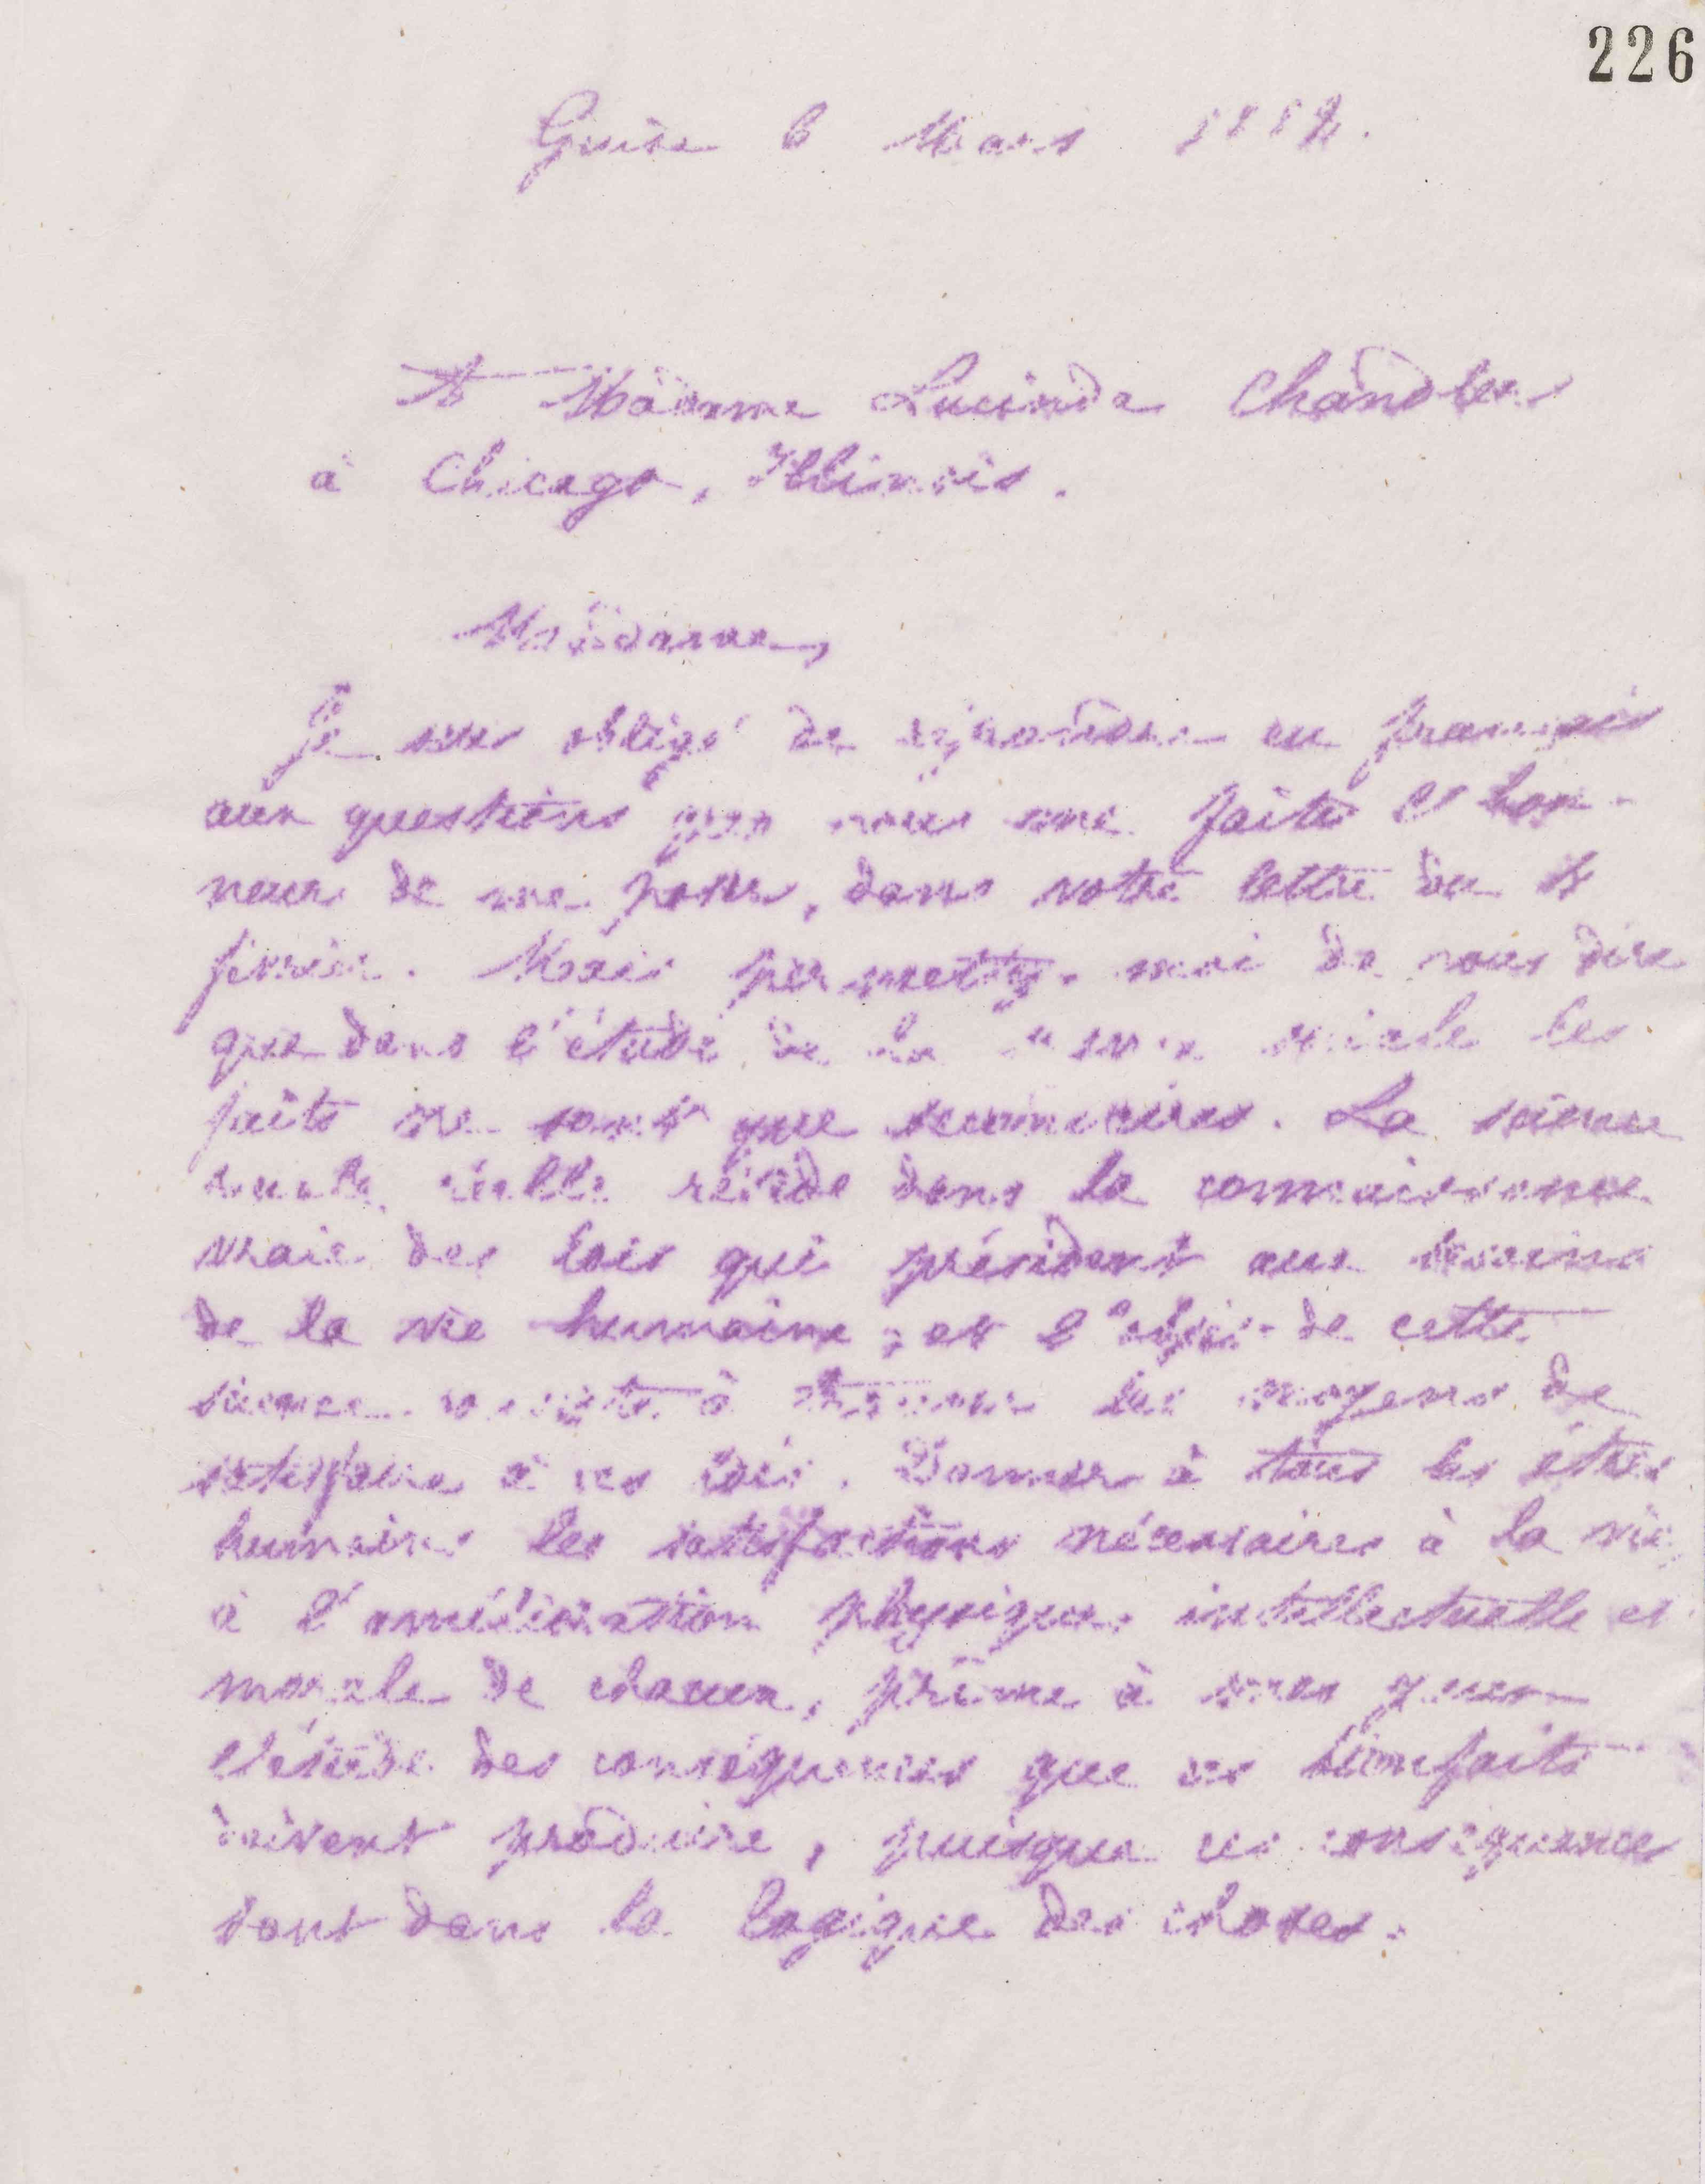 226
Guise 6 Mars 188
A Madame Lucinda Chandler
à Chicago, Illinois.
Madame,
Je suis obligé de répondre en français
aux questions que vous me faites l'hon-
neur de me poser, dans votre lettre du
février. Mais permettez-moi de vous dire
que dans l'étude de la sociale les
faits ne sont que secondaires. La science
sociale réelle réside dans la connaissance
vraie des lois qui président aux besoins
de la vie humaine ; et l'objet de cette
science consiste à trouver les moyens de
satisfaire à ces lois. Donner à tous les êtres
humains les satisfactions nécessaires à la vie,
à l'amélioration physique, intellectuelle et
morale de chacun, prime à mes yeux
l'étude des conséquences que ces bienfaits
doivent produire, puisque ces conséquences
sont dans la logique des choses.